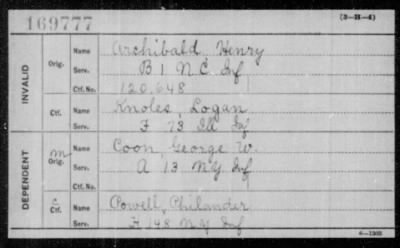 169777
(3-H-4)
INVALID
Orig. Name Archibald Henry
Serv. B 1 N C Inf
Ctf. No. 120,648
Ctf. Name Knoles, Logan
Serv. F 73 Ill Inf
DEPENDENT
m
Orig. Name Coon, George W.
Serv. A 13 N Y Inf
Ctf. No.
c
Ctf. Name Powell, Philander
Serv. F 148 N Y Inf
6-1903